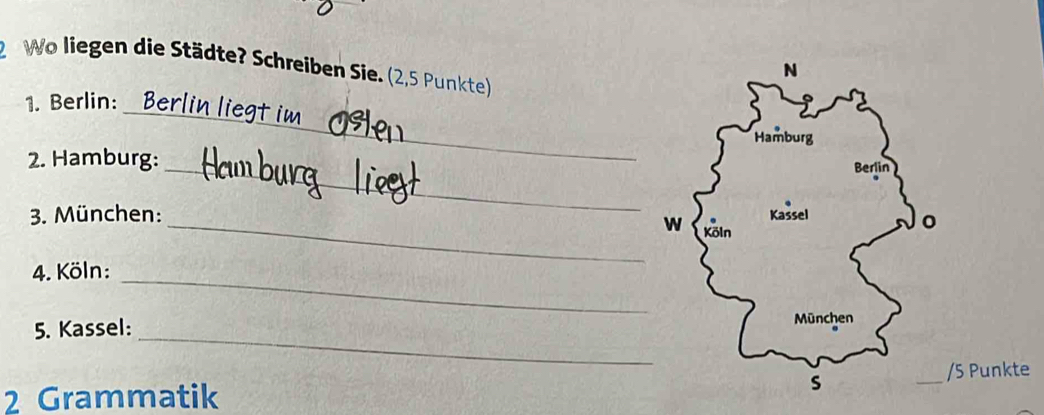 2 Wo liegen die Städte? Schreiben Sie. (2,5 Punkte)
1. Berlin: Berlin liegt im Osten
2. Hamburg: Hamburg liegt
3. München:
4. Köln:
5. Kassel:
N
Hamburg
Berlin
Kassel
W Köln O
München
S
/5 Punkte
2 Grammatik